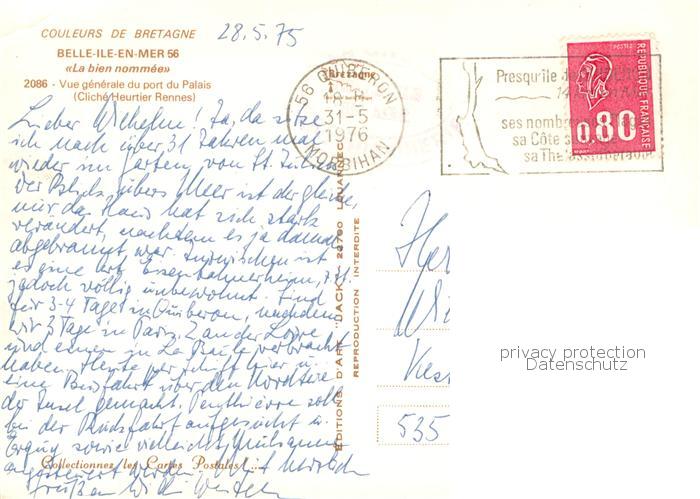 COULEURS DE BRETAGNE
BELLE-ILE-EN-MER 56
«La bien nommée»
2086 - Vue générale du port du Palais
(Cliché Heurtier Rennes)
28.5.75
Lieber Wilhelm! Ja, da sitze
ich nach über 31 Jahren mal
wieder im Garten von St. Julien
Der Blick übers Meer ist der gleiche,
nur das Haus hat sich stark
verändert, nachdem es ja damals
abgebrannt war. Inzwischen ist
es eine Art Eisenbahnerheim, z. Zt.
jedoch völlig unbewohnt. Sind
für 3-4 Tage in Quiberon, nachdem
wir 3 Tage in Paris, 2 an der Loire
und einen in La Baule verbracht
haben. Heute per Schiff hier u.
eine Busfahrt über den Nordteil
der Insel gemacht. Penthièvre soll
bei der Rückfahrt aufgesucht u.
sowie vielleicht
angesteuert werden. Mit herzlich
Grüßen
Collectionnez les Cartes Postales
EDITIONS D'ART "JACK"
REPRODUCTION INTERDITE
56 QUIBERON
Bretagne
18 H
31-5
1976
MORBIHAN
Presqu'île
ses nombreu
sa Côte s
sa Thalassothérapie
POSTES
REPUBLIQUE FRANCAISE
0,80
Her
Wi
Kes
535
privacy protection
Datenschutz